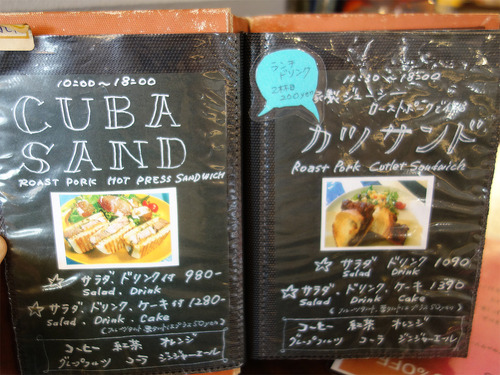 10:00~18:00
CUBA
SAND
ROAST PORK HOT PRESS SANDWICH
☆ サラダ、ドリンク付 980-
Salad, Drink
☆ サラダ、ドリンク、ケーキ付 1280-
Salad, Drink, Cake
コーヒー 紅茶 オレンジ
グレープフルーツ コーラ ジンジャーエール
ランチ
ドリンク
2杯目
200yen
11:30~18:00
製ジューシー
ローストポーク
カツサンド
Roast Pork Cutlet Sandwich
☆ サラダ、ドリンク 1090
Salad Drink
☆ サラダ、ドリンク、ケーキ 1390
Salad Drink Cake
コーヒー 紅茶 オレンジ
グレープフルーツ コーラ ジンジャーエール
%OFF